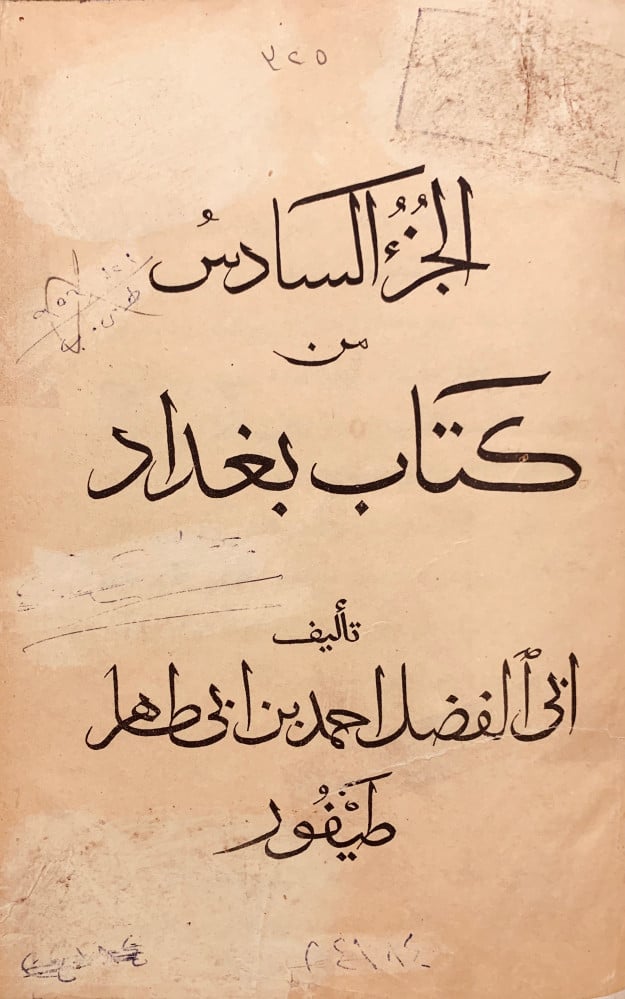 الجُزُء السادسُ
من
كتاب بغداد
تأليف
ابى ٱلفضل احمد بن ابى طاهر
طَيْفُور